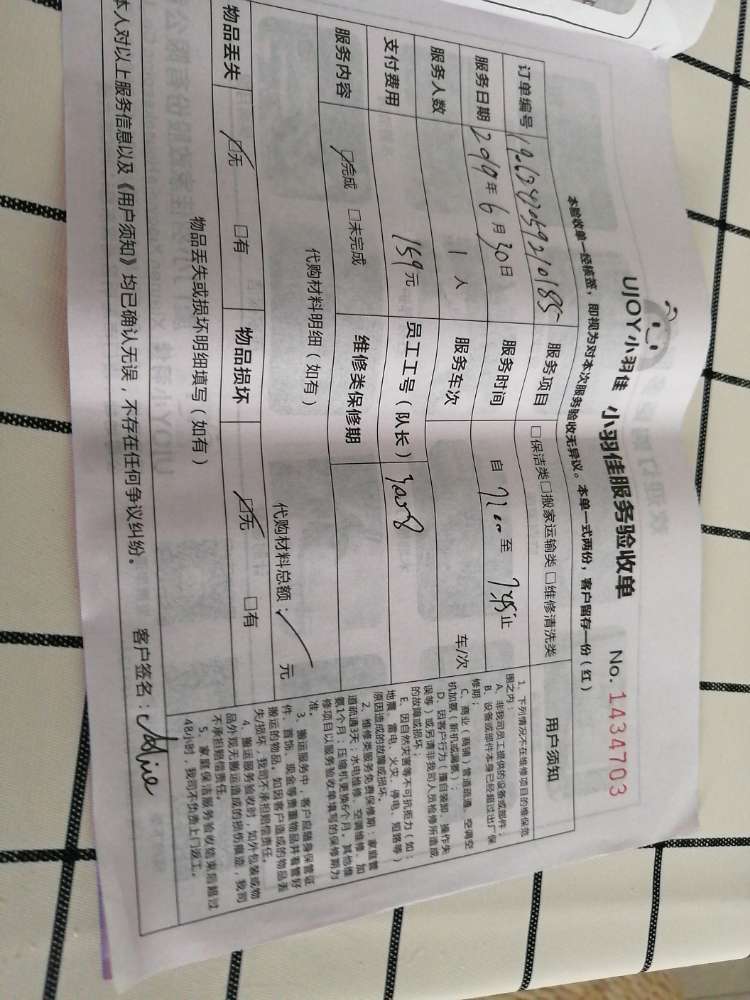 UJOY小羽佳 小羽佳服务验收单 No. 1434703
本验收单一经核签，即视为对本次服务验收无异议。本单一式两份，客户留存一份（红）
订单编号 服务项目 □保洁类□搬家运输类□维修清洗类
服务日期 2019年6月30日 服务时间 自 至 止
服务人数 1人 服务车次 车/次
支付费用 159元 员工工号（队长）
服务内容 ☑完成 □未完成 维修类保修期
代购材料明细（如有） 代购材料总额： 元
物品丢失 ☑无 □有 物品损坏 ☑无 □有
物品丢失或损坏明细填写（如有）
本人对以上服务信息以及《用户须知》均已确认无误，不存在任何争议纠纷。 客户签名：
用户须知
1、下列情况不在维修项目的维保范
围之内：
A、非我司员工提供的设备或部件
B、设备或部件本身已经超过出厂保
修期；
C、商业（商铺）管道疏通、空调空
机加氨（新机或漏氨）；
D、因客户行为（擅自装卸、操作失
误等）或另请非我司人员检修所造成
的故障或损坏；
E、因自然灾害等不可抗拒力（如：
地震、雷电、火灾、停电、短路等）
原因造成的故障或损坏。
2、维修类服务免费保修期：家庭管
道疏通3天；水电维修、空调维修、加
氨1个月；压缩机更换6个月，其他维
修项目以服务验收单填写的保修期为
准。
3、搬运服务中，客户应随身保管证
件、首饰、现金等贵重物品并看管好
搬运的物品。如因客户造成的物品丢
失/损坏，我司不承担赔偿责任。
4、搬运服务验收时，如外包装或物
品外观无搬运造成的损伤痕迹，我司
不承担赔偿责任。
5、家庭保洁服务验收结束后超过
48小时，我司不负责上门返工。